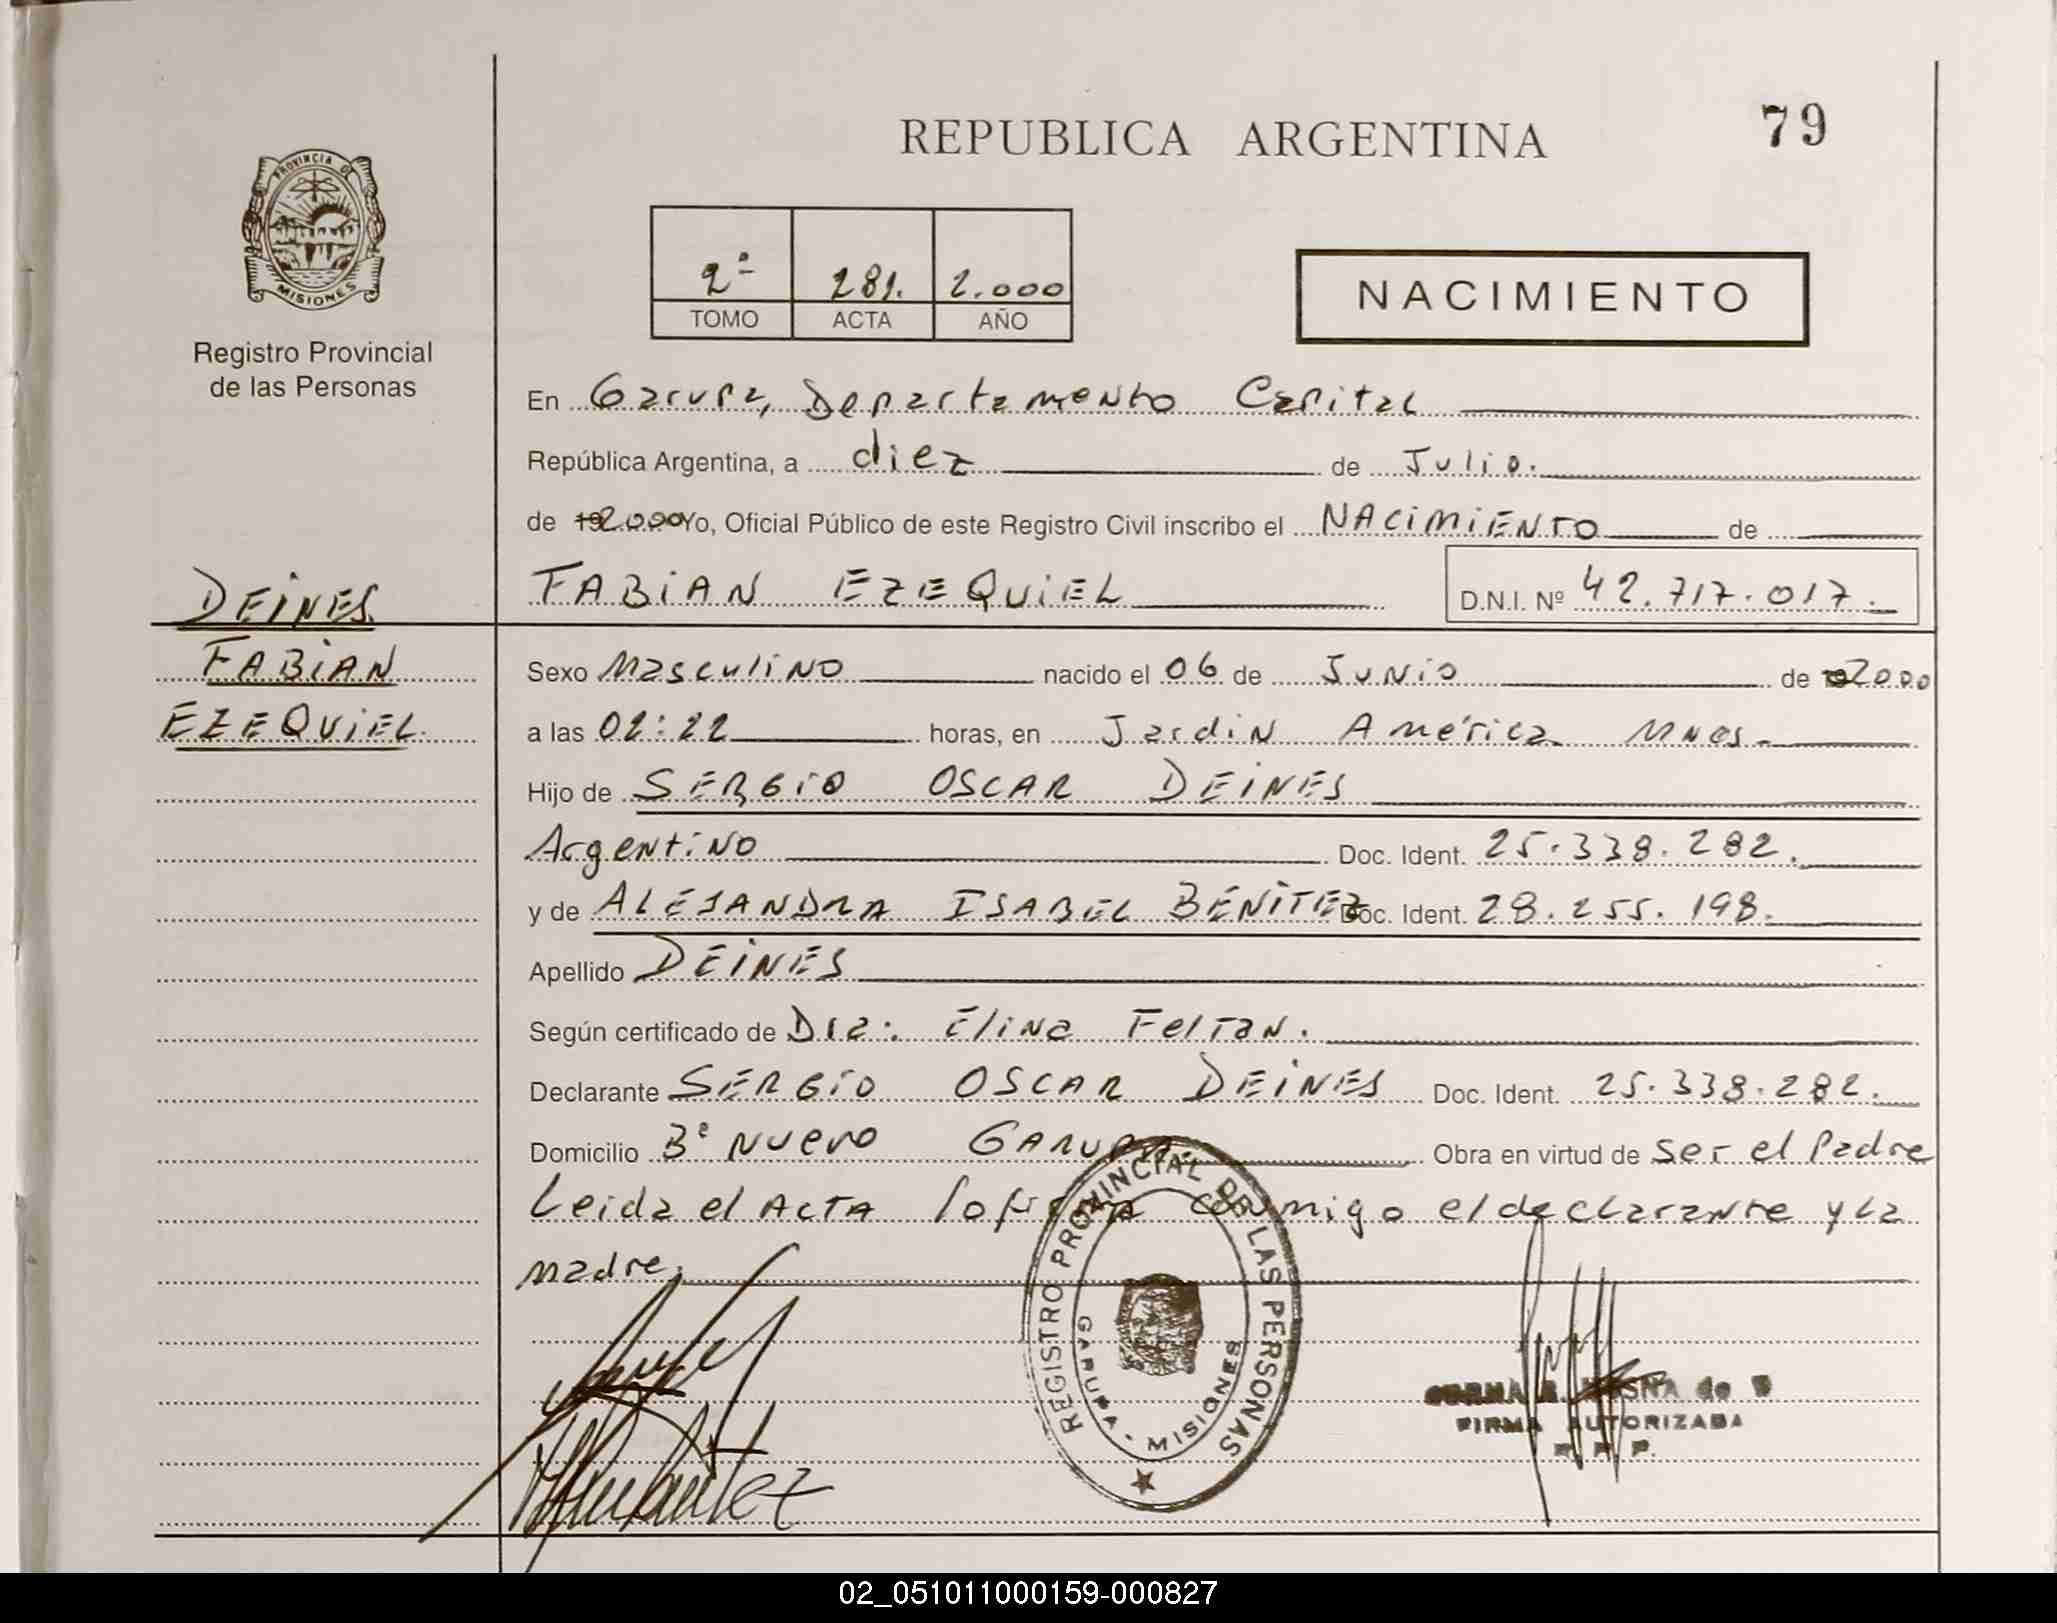 REPUBLICA ARGENTINA
79
PROVINCIA DE
MISIONES
Registro Provincial
de las Personas
2º 281. 2.000
TOMO ACTA AÑO
NACIMIENTO
En Garupa, Departamento Capital
República Argentina, a diez de Julio.
de 192.000 Yo, Oficial Público de este Registro Civil inscribo el NACIMIENTO de
FABIAN EZEQUIEL D.N.I. Nº 42.717.017.
DEINES
FABIAN
EZEQUIEL
Sexo Masculino nacido el 06 de Junio de 2000
a las 02:22 horas, en Jardin América Mnes.
Hijo de SERGIO OSCAR DEINES
Argentino Doc. Ident. 25.338.282.
y de ALEJANDRA ISABEL BENITEZ Doc. Ident. 28.255.198.
Apellido DEINES
Según certificado de Dra: Elina Feltan.
Declarante SERGIO OSCAR DEINES Doc. Ident. 25.338.282.
Domicilio Bº Nuevo GARUPA. Obra en virtud de ser el Padre
Leida el ACTA lo firma conmigo el declarante y la
madre.
REGISTRO PROVINCIAL DE LAS PERSONAS
GARUPA - MISIONES
FIRMA AUTORIZADA
02_051011000159-000827